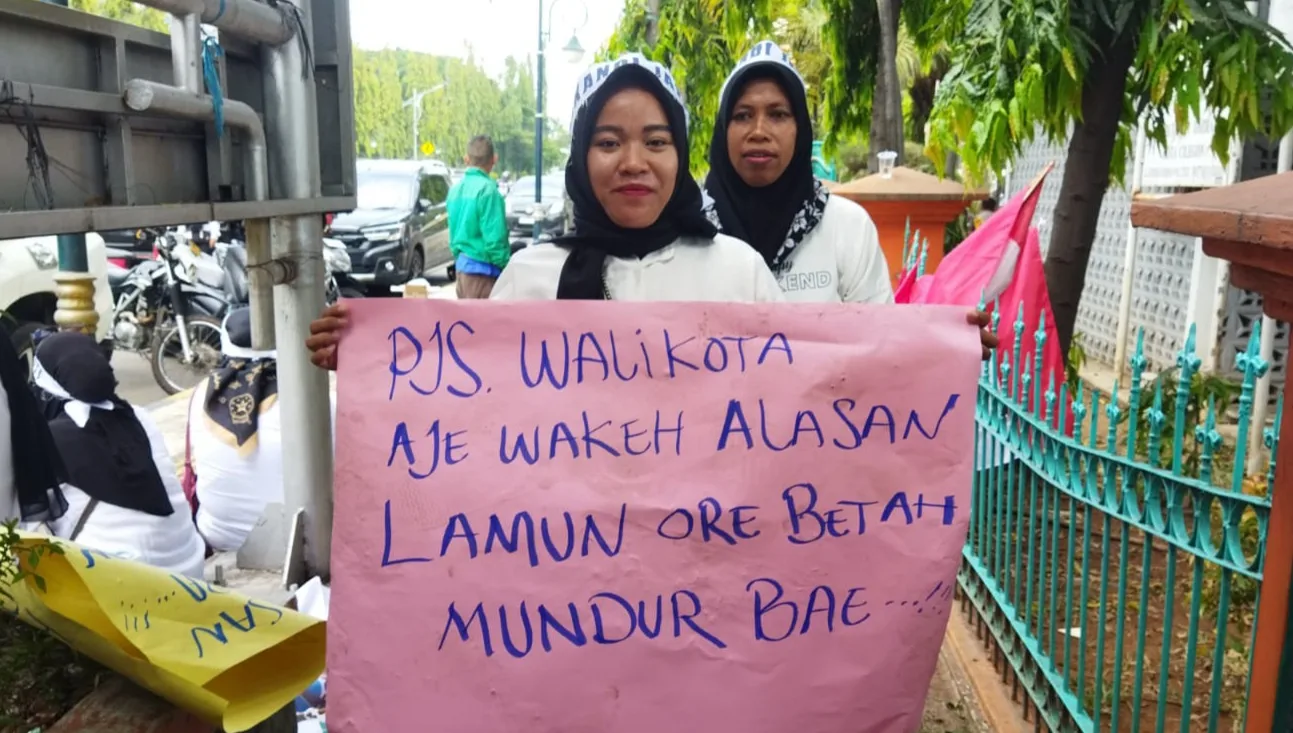 PJS. WALiKOTA
AJE WAKEH ALASAN
LAMUN ORE BETAH
MUNDUR BAE ...!!
KEND